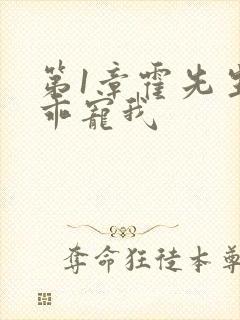 第1章霍先生
乖宠我
夺命狂徒本尊